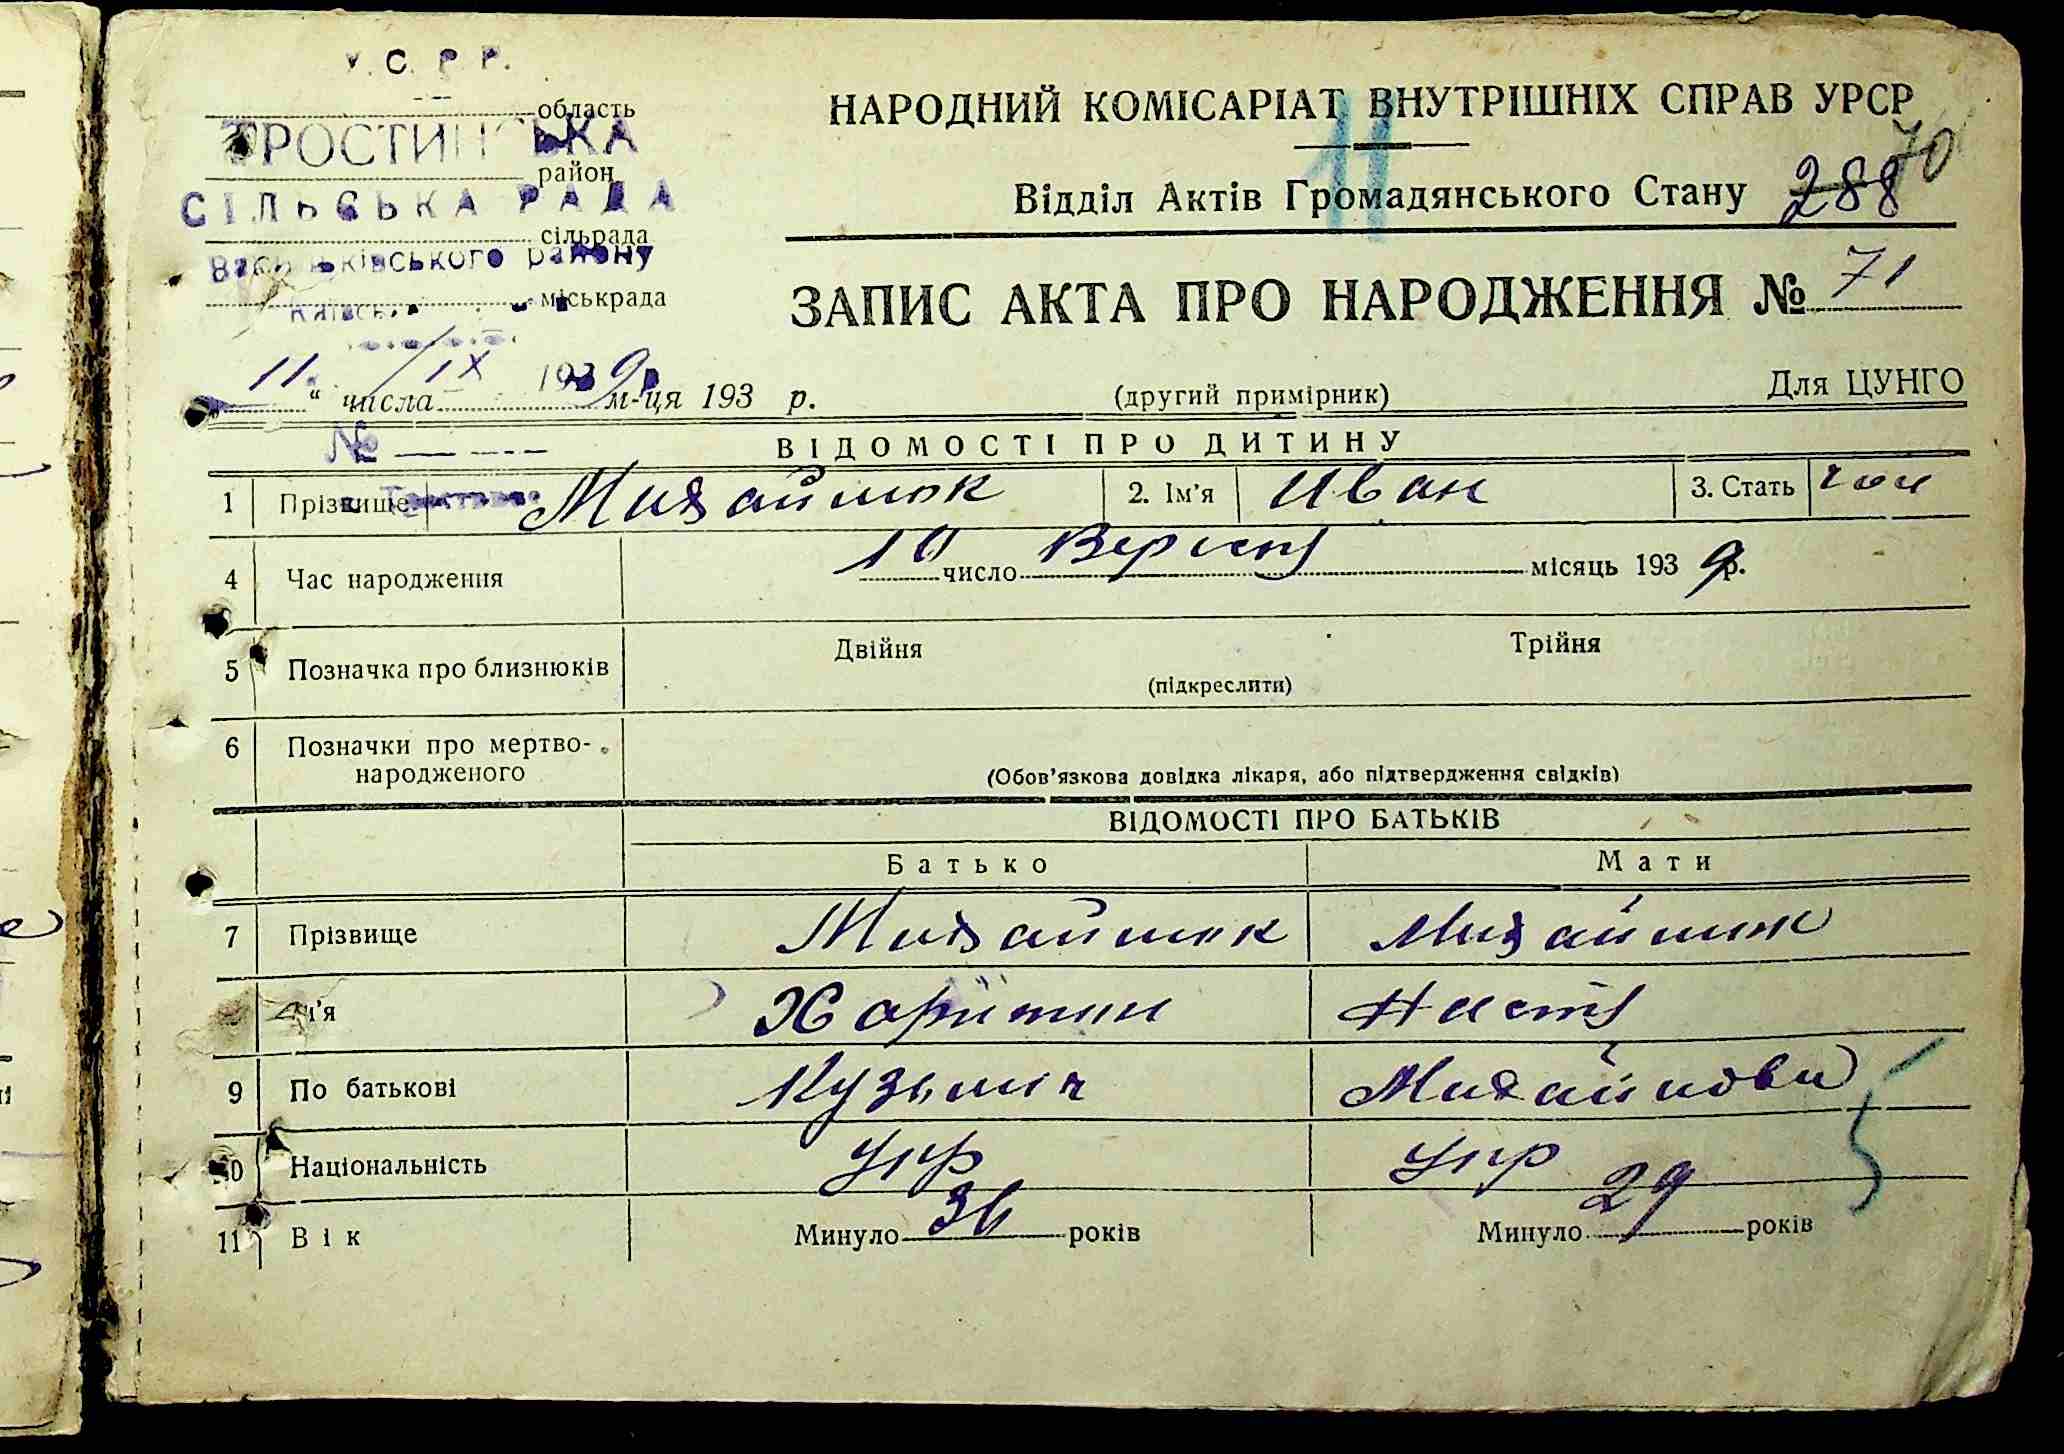 У.С.Р.Р.
область
ТРОСТИНСЬКА
район
СІЛЬСЬКА РАДА
сільрада
Васильківського району
міськрада
НАРОДНИЙ КОМІСАРІАТ ВНУТРІШНІХ СПРАВ УРСР
11
70
Відділ Актів Громадянського Стану 288
ЗАПИС АКТА ПРО НАРОДЖЕННЯ № 71
11 / IX 1939 р
„ “ числа м-ця 193 р.
(другий примірник)
Для ЦУНГО
№
ВІДОМОСТІ ПРО ДИТИНУ
1 Прізвище Михайлюк 2. Ім'я Иван 3. Стать чол
4 Час народження 10 число Вересня місяць 1939 р.
5 Позначка про близнюків Двійня Трійня
(підкреслити)
6 Позначки про мертво-
народженого
(Обов'язкова довідка лікаря, або підтвердження свідків)
ВІДОМОСТІ ПРО БАТЬКІВ
Батько Мати
7 Прізвище Михайлюк Михайлюк
м'я Харитин Настя
9 По батькові Кузьмич Михайлови
10 Національність укр укр
11 Вік Минуло 36 років Минуло 29 років